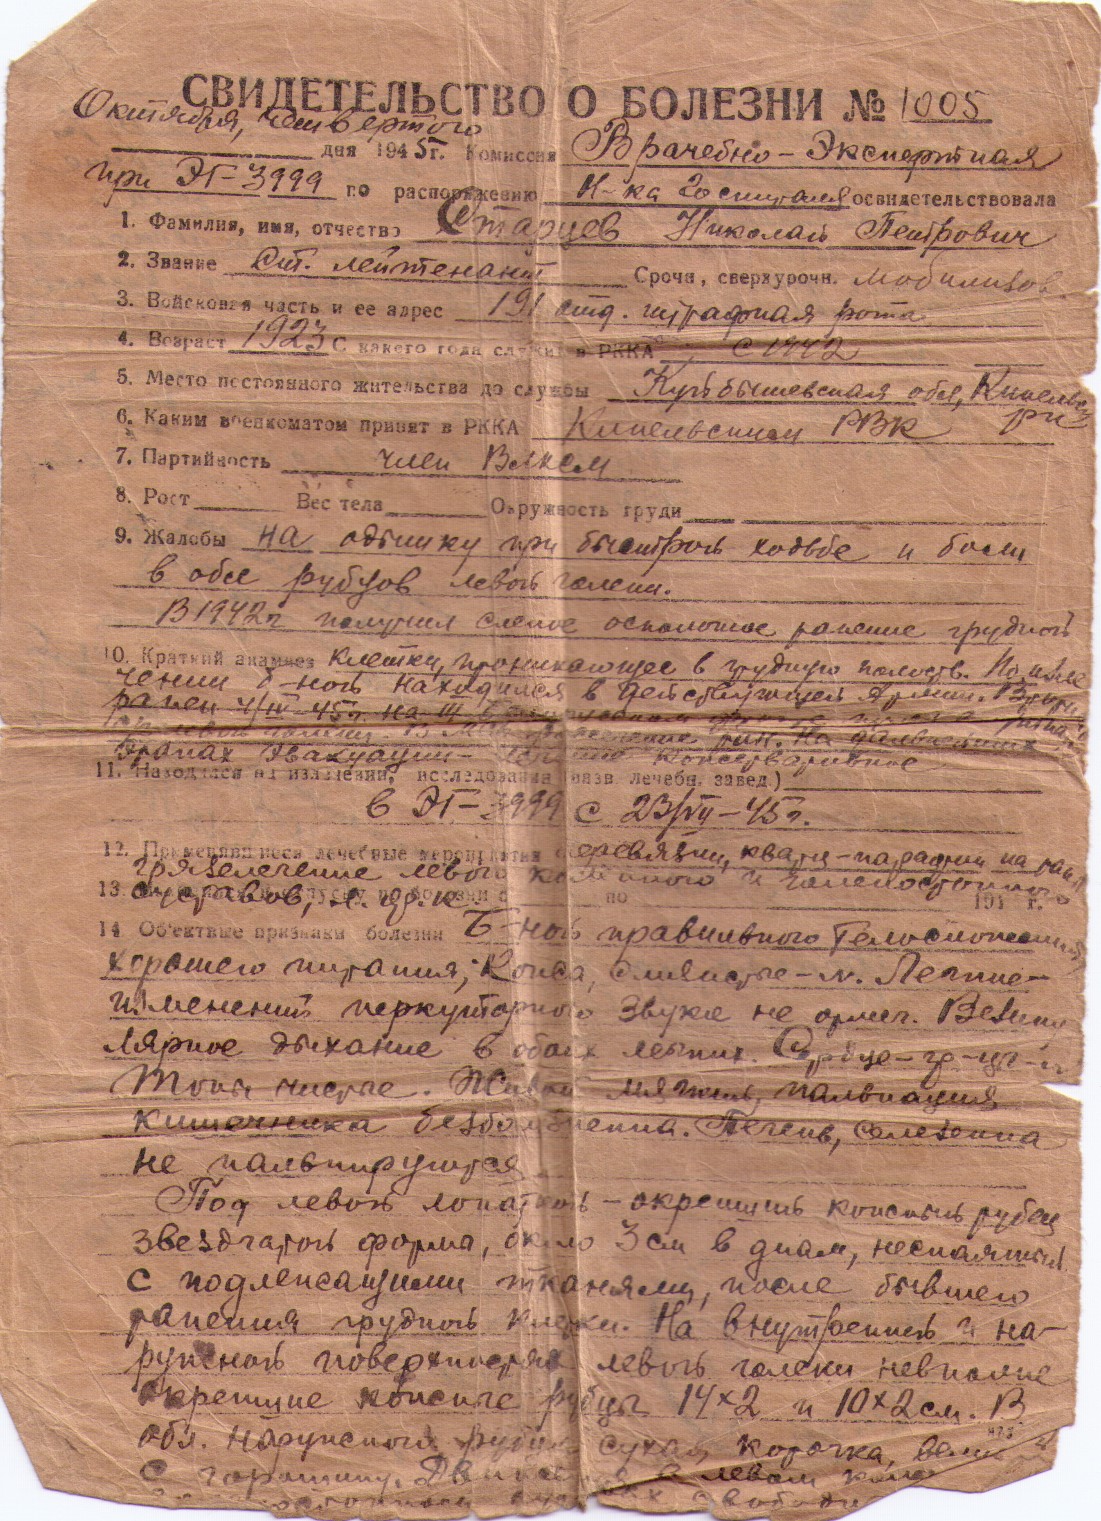 СВИДЕТЕЛЬСТВО О БОЛЕЗНИ № 1005
Октября, четвертого
дня 1945г. Комиссия Врачебно-Экспертная
при ЭГ-3999 по распоряжению Н-ка Госпиталя освидетельствовала
1. Фамилия, имя, отчество Старцев Николай Петрович
2. Звание Ст. лейтенант Срочн, сверхурочн. мобилизов.
3. Войсковая часть и ее адрес 191 отд. штрафная рота
4. Возраст 1923 С какого года служил в РККА с 1942
5. Место постоянного жительства до службы Куйбышевская обл, Кинельск
р-н
6. Каким военкоматом принят в РККА Кинельским РВК
7. Партийность член ВЛКСМ
8. Рост Вес тела Окружность груди
9. Жалобы на одышку при быстрой ходьбе и боли
в обл рубцов левой голени.
В 1942г получил слепое осколочное ранение грудной
10. Краткий анамнез клетки, проникающее в грудную полость. По изле
чении б-ной находился в действующей Армии. Вторично
ранен 4/IV-45г. на III
левой голени. В на дальнейших
этапах эвакуации- консервативное
11. Находился на излечении, исследовании (назв. лечебн. завед.)
в ЭГ-3999 с 23/VII-45г.
12. Применявшиеся лечебные мероприятия перевязки, кварц-парафин на
грязелечение левого коленного и голеностопного
13. по 194 г.
суставов,
14 Об'ектвные признаки болезни Б-ной правильного телосложения
хорошего питания; Кожа, слизистые-N. Легкие-
изменений перкуторного звука не отмеч. Везику
лярное дыхание в обоих легких. Сердце-гр-цы-N
Тоны чистые. Живот мягкий, пальпация
кишечника безболезненна. Печень, селезенка
не пальпируются
Под левой лопаткой-окрепший кожный рубец
звездчатой форма, около 3 см в диам, неспаянный
с подлежащими тканями, после бывшего
ранения грудной клетки. На внутренней и на-
ружной поверхностях левой голени невполне
окрепшие кожные рубцы 14×2 и 10×2см. В
обл. наружного рубца сухая корочка,
с горошину. Движения в левом